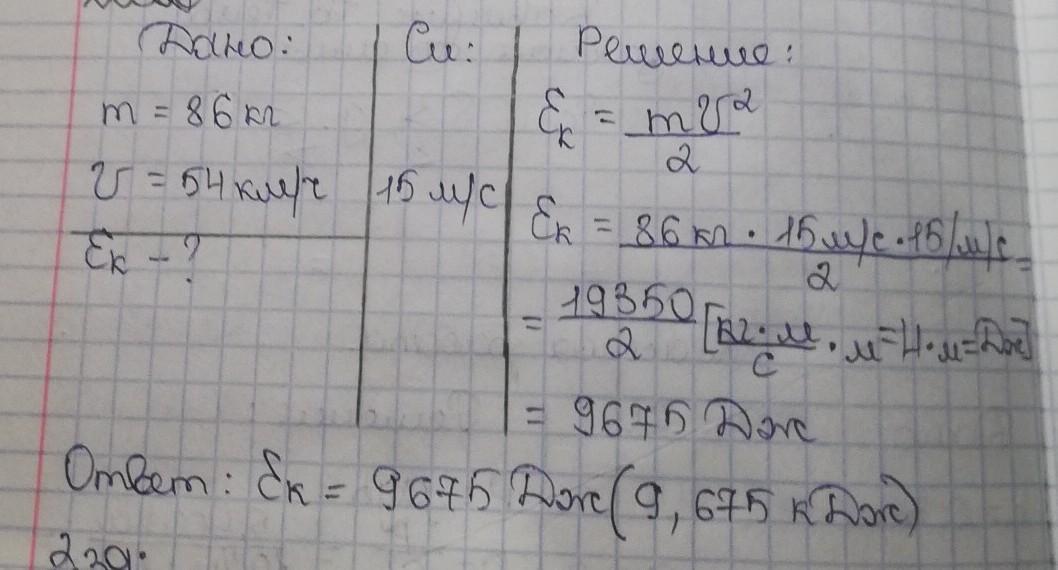 Дано:
m = 86 кг
υ = 54 км/ч
Eк - ?
Си:
15 м/с
Решение:
Eк = mυ²/2
Eк = 86 кг · 15 м/с · 15/м/с / 2 =
= 19350/2 [кг·м/с · м = Н·м = Дж]
= 9675 Дж
Ответ: Eк = 9675 Дж (9,675 кДж)